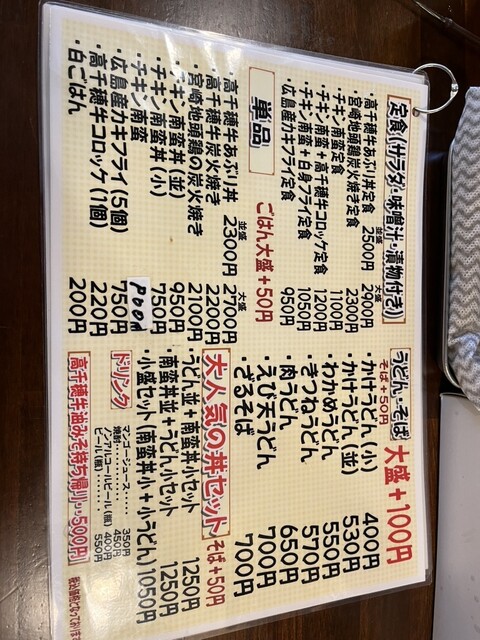 定食(サラダ・味噌汁・漬物付き)
並盛 大盛
・高千穂牛あぶり丼定食 2500円 2900円
・宮崎地頭鶏炭火焼き定食 2300円
・チキン南蛮定食 1100円
・チキン南蛮+高千穂牛コロッケ定食 1200円
・チキン南蛮+白身フライ定食 1050円
・広島産カキフライ定食 950円
ごはん大盛+50円
単品
並盛 大盛
・高千穂牛あぶり丼 2300円 2700円
・高千穂牛炭火焼き 2200円
・宮崎地頭鶏の炭火焼き 2100円
・チキン南蛮丼(並) 950円
・チキン南蛮丼(小) 750円
・チキン南蛮
・広島産カキフライ(5個) 750円
・高千穂牛コロッケ(1個) 220円
・白ごはん 200円
うどん・そば 大盛+100円
そば+50円
・かけうどん(小) 400円
・かけうどん(並) 530円
・わかめうどん 550円
・きつねうどん 570円
・肉うどん 650円
・えび天うどん 700円
・ざるそば 700円
大人気の丼セット そば+50円
・うどん並+南蛮丼小セット 1250円
・南蛮丼並+うどん小セット 1250円
・小盛セット(南蛮丼小+小うどん) 1050円
ドリンク
マンゴージュース・・・・・ 350円
焼酎・・・・・・・・・ 450円
ノンアルコールビール(瓶) 400円
ビール(瓶)・・・・・・ 550円
高千穂牛油みそ持ち帰り・・500円
税込価格となっております